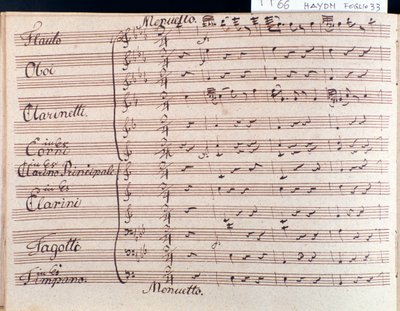 1766 HAYDN FOGLIO 33
Menuetto.
Flauto
Oboi
Clarinetti.
in Es
Corni
in Es
Clarino Principale
in Es
Clarini
Fagotto
in Es
Timpano.
Menuetto.